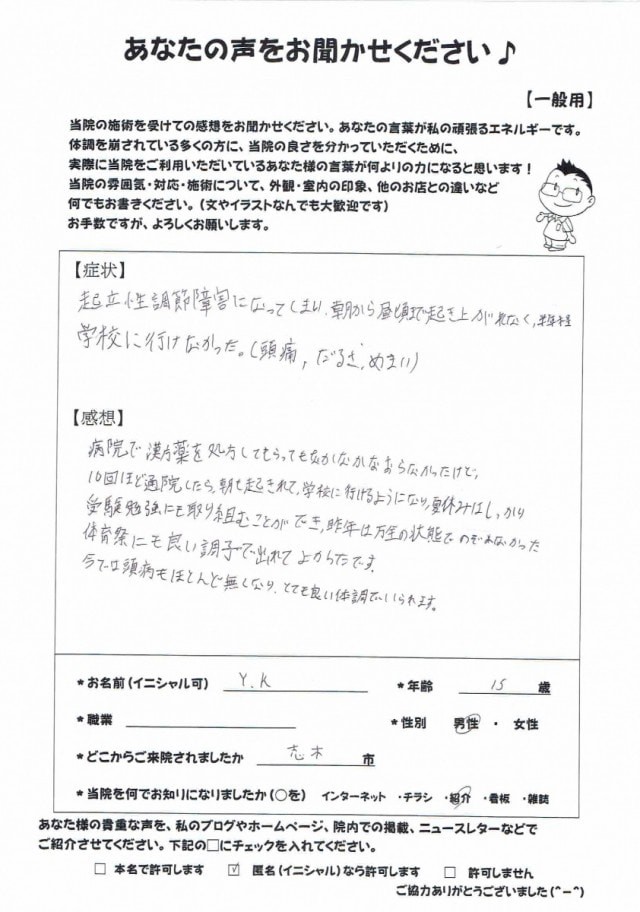 あなたの声をお聞かせください♪
【一般用】
当院の施術を受けての感想をお聞かせください。あなたの言葉が私の頑張るエネルギーです。
体調を崩されている多くの方に、当院の良さを分かっていただくために、
実際に当院をご利用いただいているあなた様の言葉が何よりの力になると思います！
当院の雰囲気・対応・施術について、外観・室内の印象、他のお店との違いなど
何でもお書きください。（文やイラストなんでも大歓迎です）
お手数ですが、よろしくお願いします。
【症状】
起立性調節障害になってしまい、朝から昼頃まで起き上がれなく、半年程
学校に行けなかった。（頭痛，だるさ，めまい）
【感想】
病院で漢方薬を処方してもらってもなかなかなおらなかったけど、
10回ほど通院したら、朝も起きれて、学校に行けるようになり、夏休みはしっかり
受験勉強にも取り組むことができ、昨年は万全の状態でのぞめなかった
体育祭にも良い調子で出れてよかったです。
今では頭痛もほとんど無くなり、とても良い体調でいられます。
＊お名前（イニシャル可） Y.K ＊年齢 15 歳
＊職業 ＊性別 男性 ・ 女性
＊どこからご来院されましたか 志木 市
＊当院を何でお知りになりましたか（○を） インターネット ・チラシ ・紹介 ・看板 ・雑誌
あなた様の貴重な声を、私のブログやホームページ、院内での掲載、ニュースレターなどで
ご紹介させてください。下記の□にチェックを入れてください。
□ 本名で許可します ☑ 匿名（イニシャル）なら許可します □ 許可しません
ご協力ありがとうございました（^－^）